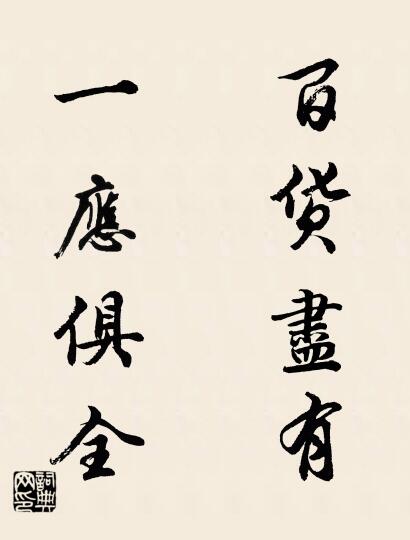 百货盡有
一應俱全
詞典网印